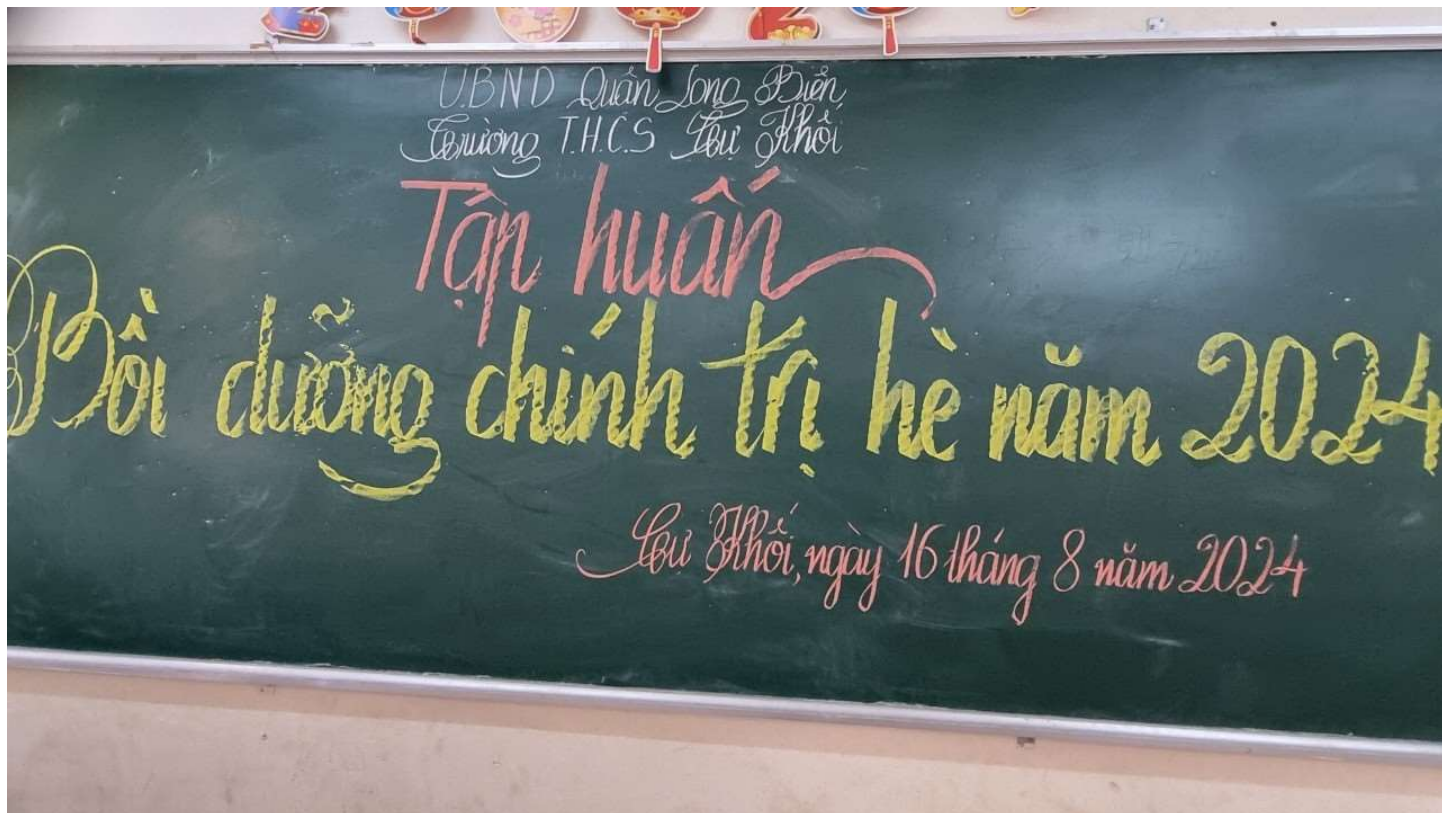 U.B.N.D Quận Long Biên
Trường T.H.C.S Cự Khối
Tập huấn
Bồi dưỡng chính trị hè năm 2024
Cự Khối, ngày 16 tháng 8 năm 2024